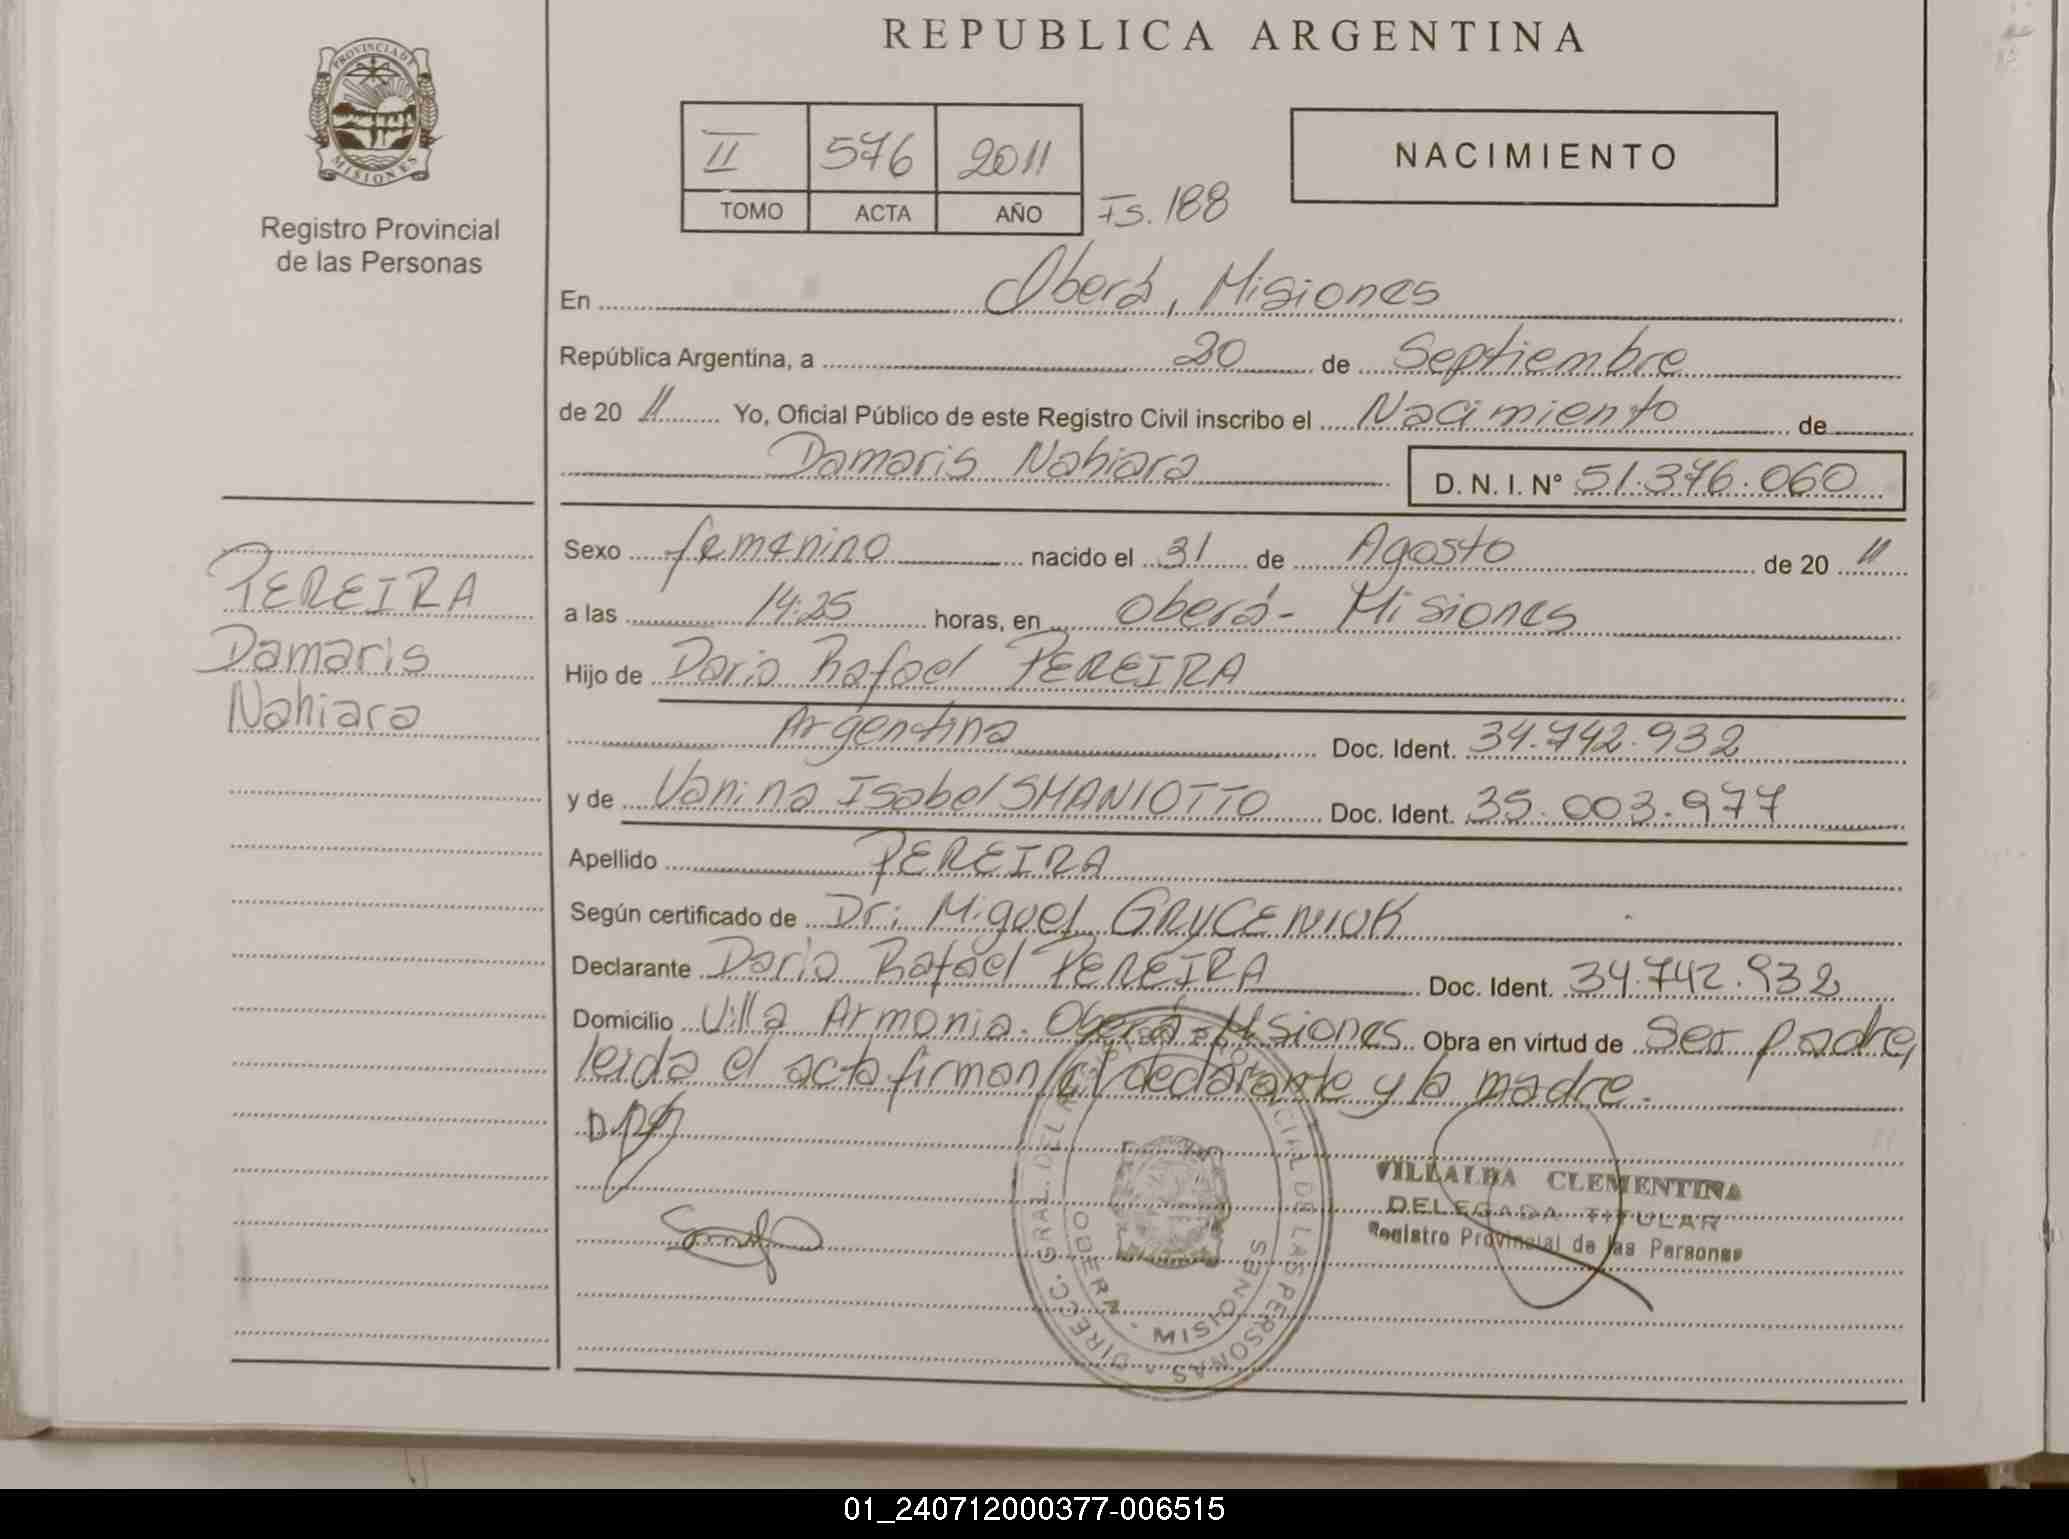 REPUBLICA ARGENTINA
PROVINCIA DE
MISIONES
Registro Provincial
de las Personas
II 576 2011
TOMO ACTA AÑO
Fs. 188
NACIMIENTO
En Oberá, Misiones
República Argentina, a 20 de Septiembre
de 20 11 Yo, Oficial Público de este Registro Civil inscribo el Nacimiento de
Damaris Nahiara D. N. I. N° 51.376.060
PEREIRA
Damaris
Nahiara
Sexo femenino nacido el 31 de Agosto de 20 11
a las 14:25 horas, en Oberá - Misiones
Hijo de Dario Rafael PEREIRA
Argentina Doc. Ident. 34.742.932
y de Vanina Isabel SMANIOTTO Doc. Ident. 35.003.977
Apellido PEREIRA
Según certificado de Dr: Miguel GRYCENIUK
Declarante Dario Rafael PEREIRA Doc. Ident. 34.742.932
Domicilio Villa Armonia. Oberá Misiones Obra en virtud de Ser padre,
leida el acta firman el declarante y la madre.
DIRECC. GRAL. DEL REGISTRO PROVINCIAL DE LAS PERSONAS
OBERA - MISIONES
VILLALBA CLEMENTINA
DELEGADA TITULAR
Registro Provincial de las Personas
01_240712000377-006515